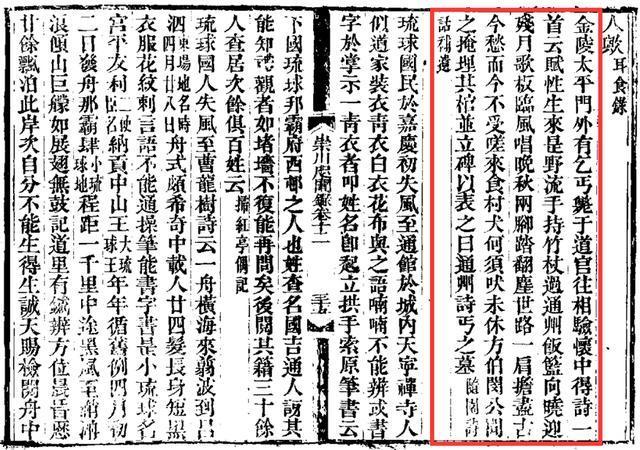 人毀耳食錄
金陵太平門外有乞丐斃于道官往相驗懷中得詩一
首云賦性生來是野流手持竹杖過通州飯籃向曉迎
殘月歌板臨風唱晚秋兩腳踏翻塵世路一肩擔盡古
今愁而今不受嗟來食村犬何須吠未休方伯閔公聞
之掩埋其棺並立碑以表之曰通州詩丐之墓隨園詩
話補遺
琉球國民於嘉慶初失風至通館於城內天寧禪寺人
似道家裝衣青衣白衣花布與之語喃喃不能辨或書
字於掌示一青衣者叩姓名卽起立拱手索原筆書云
崇川咫聞錄卷十二
下國琉球那霸府西邨之人也姓查名國吉通人訝其
能知詩觀者如堵墻不復能再問矣後閱其籍三十餘
人查居次餘俱百姓云摘紅亭偶記
琉球國人失風至曹龍樹詩云一舟橫海來翻波到呂
泗東場地名時四月廿八日舟式頗希奇中載人廿四髮長身短黑
衣服花紋刺言語不能通操筆能書字書是小琉球名
宮平友利納貢中山王大琉球王年年循舊例四月初
二日發舟那霸肆小琉球地程距一千里中途黑風至
浪傾山巨艨如展翅無鼓記道里有鍼辨方位晨昏
廿餘飄泊此岸次自分不能生得生誠天賜檢閱舟中